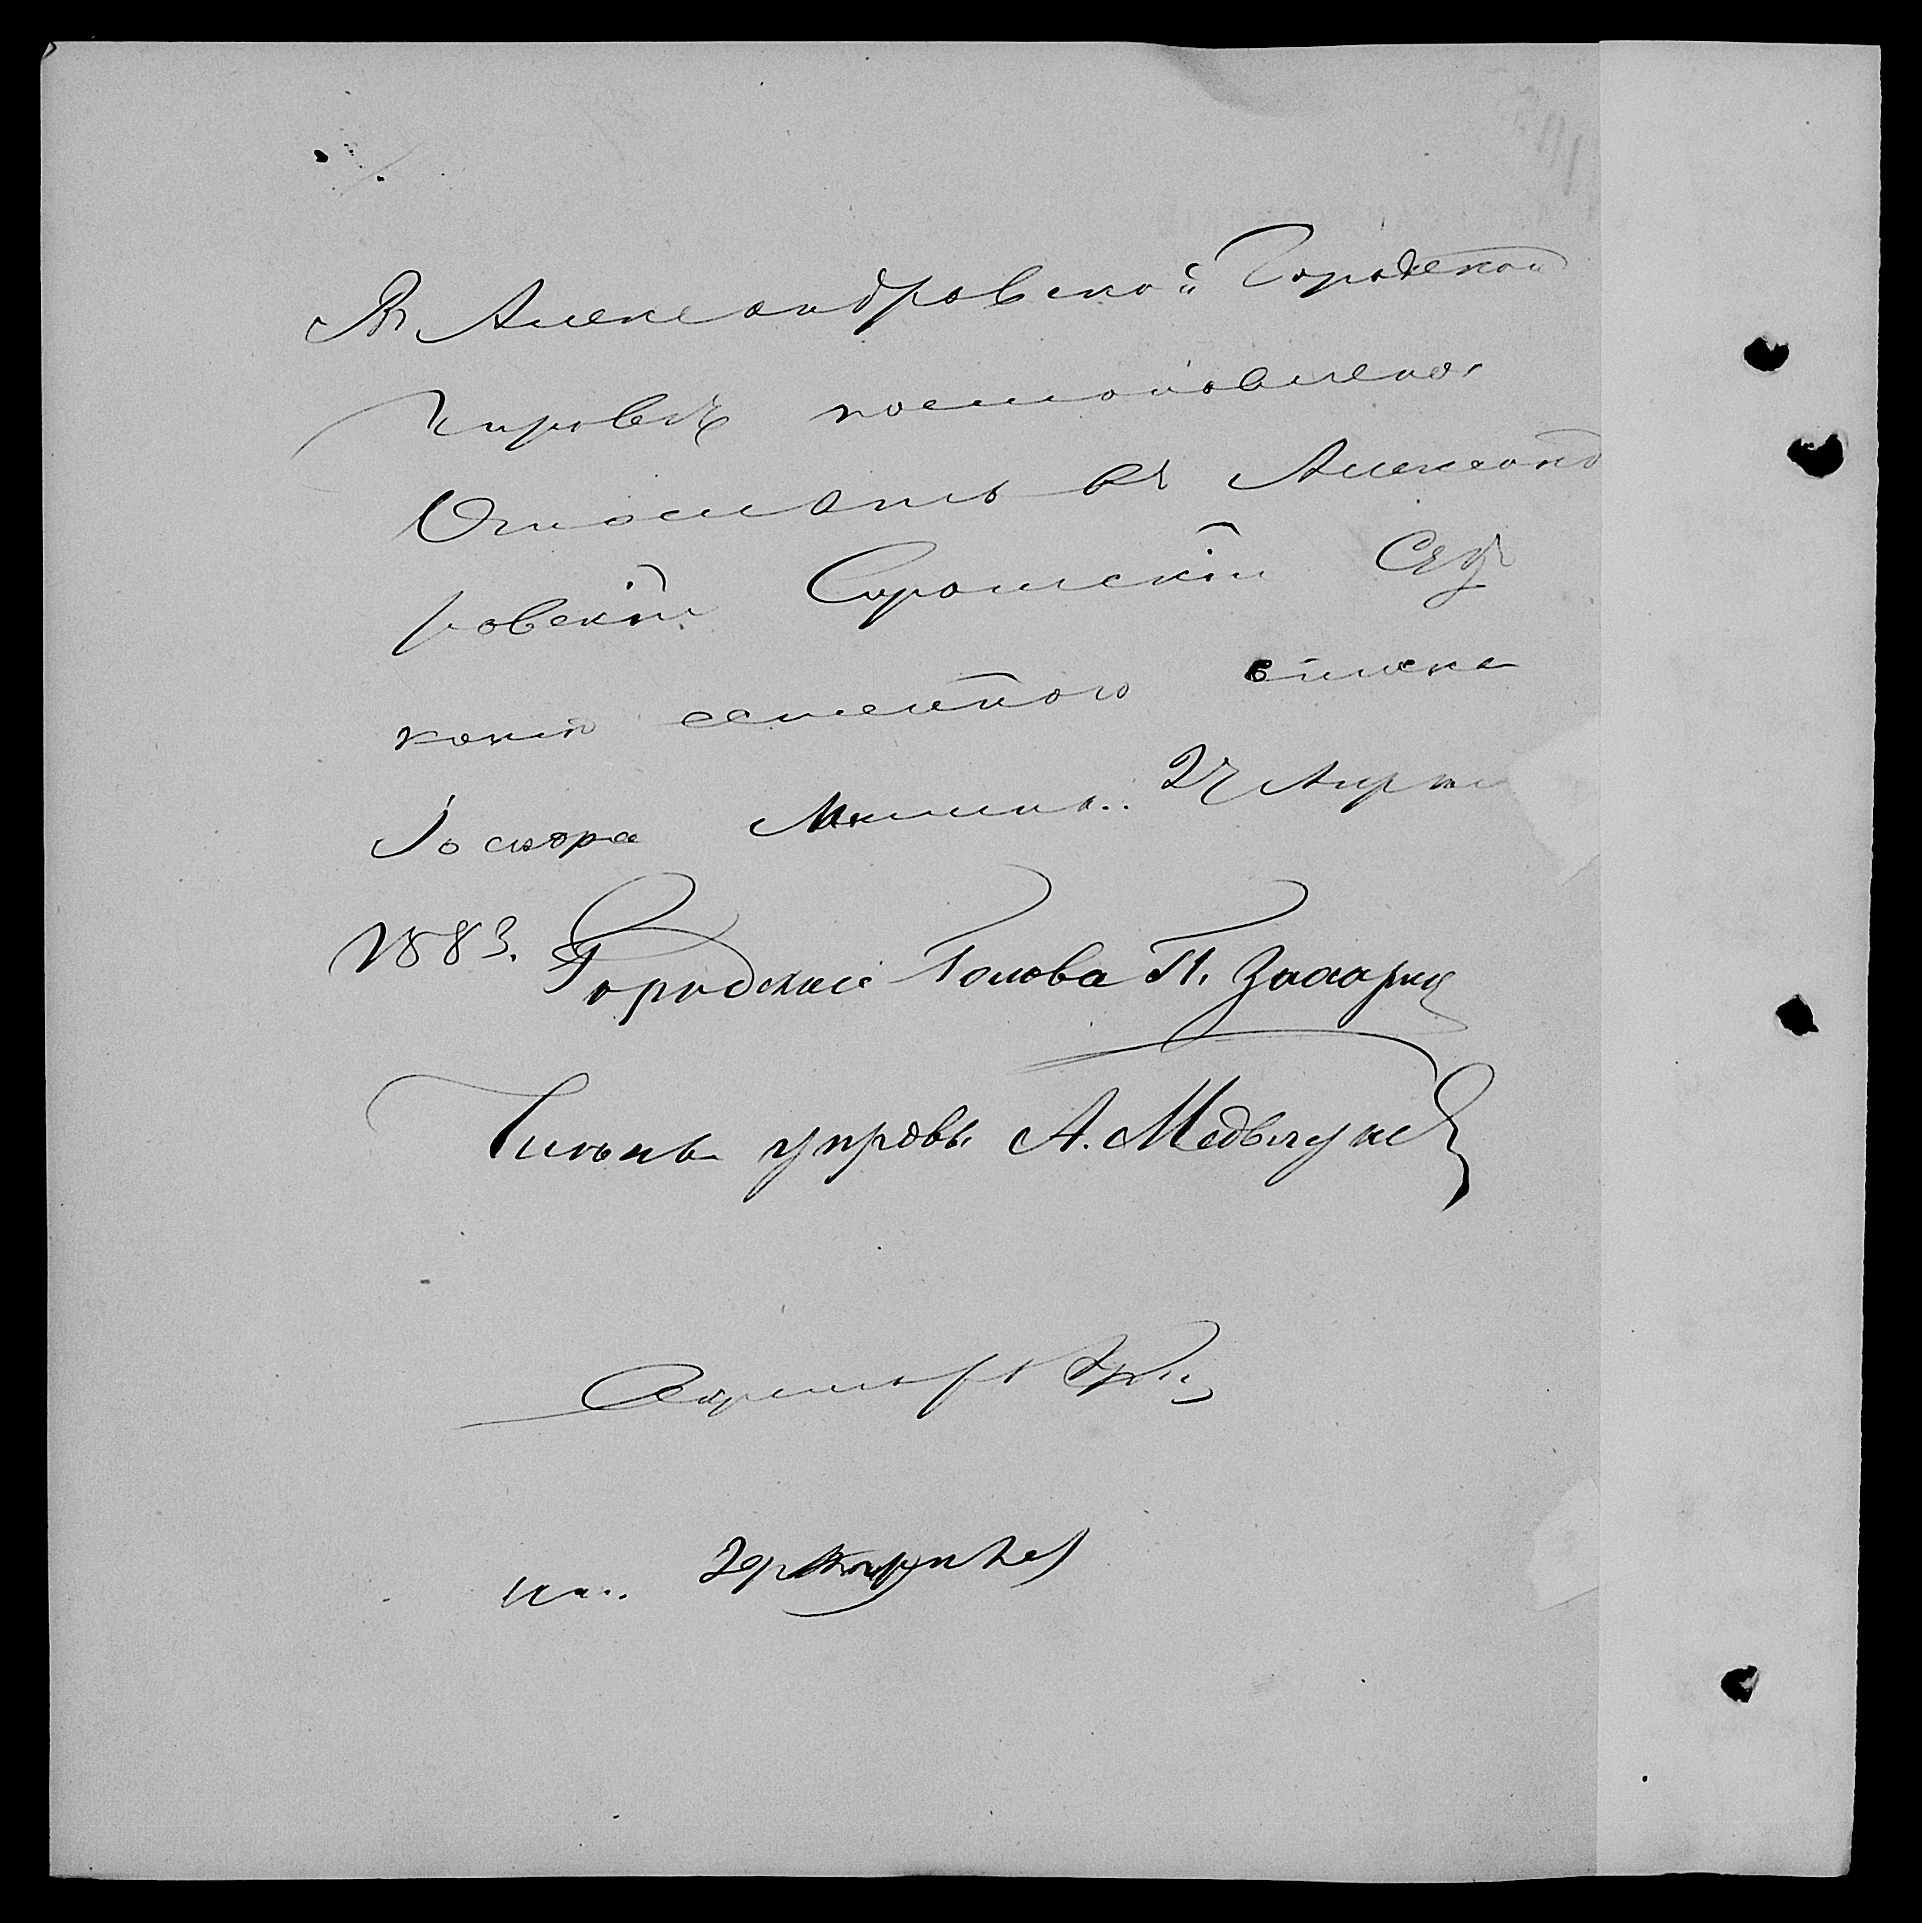 Въ Александровской Городской
Управѣ постановлено:
Отослать въ Александ
ровскій Сиротскій Судъ
копію семейнаго списка
27 Апрѣля
1883. Городской Голова П. Захарич
Членъ управы А. Медвѣдев
Секретарь